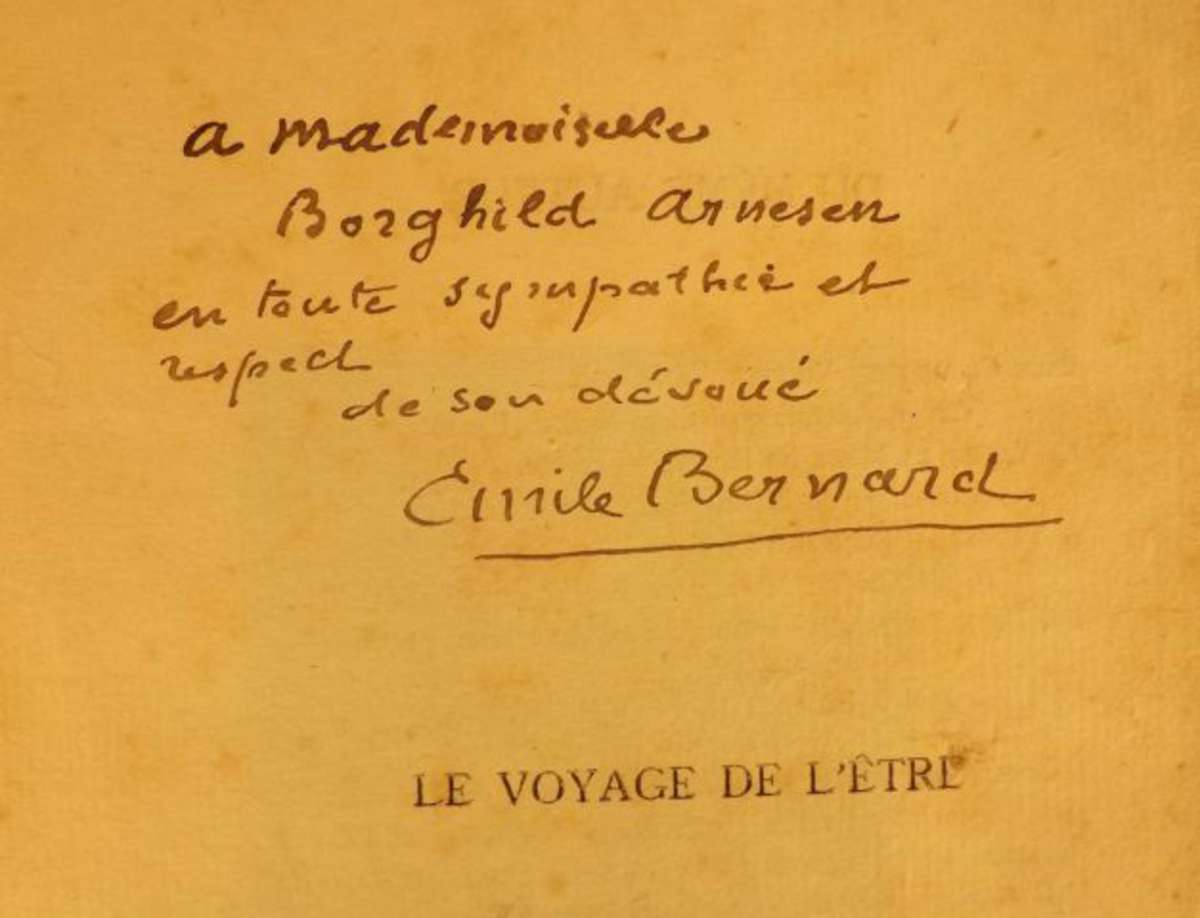 a mademoiselle
Borghild Arnesen
en toute sympathie et
respect
de son dévoué
Emile Bernard
LE VOYAGE DE L'ÊTRE